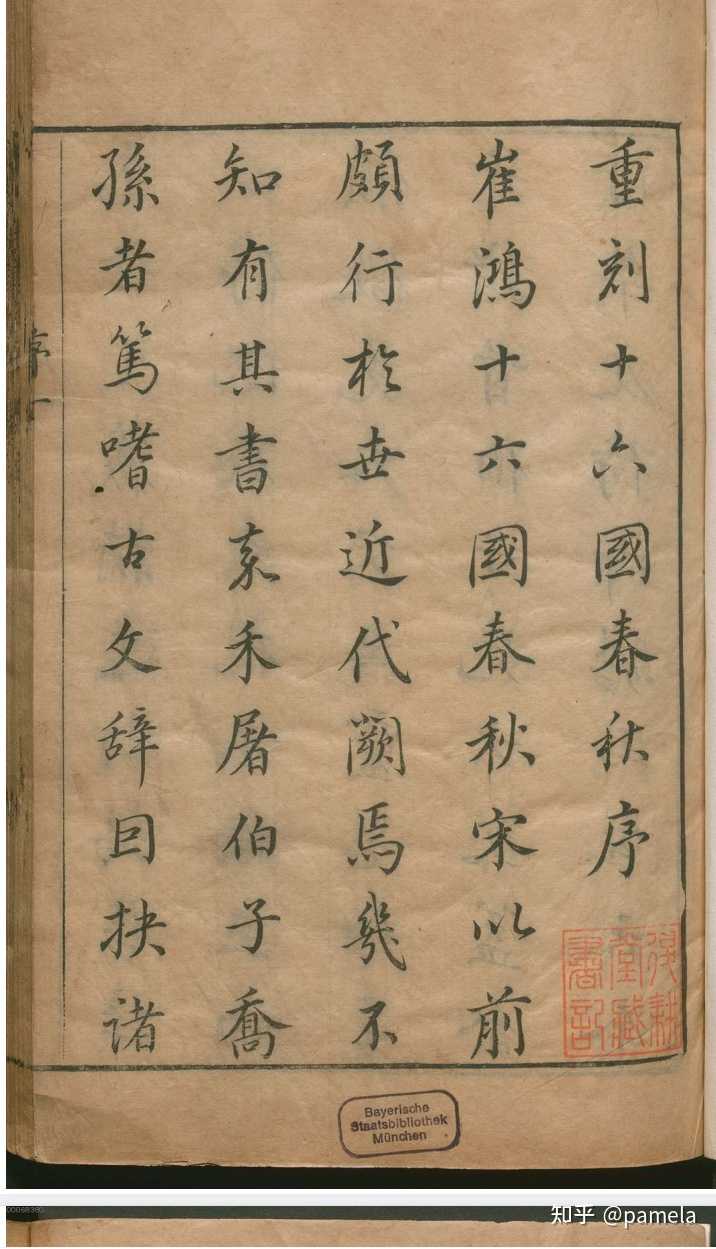 重刻十六國春秋序
崔鴻十六國春秋宋以前
頗行於世近代闕焉幾不
知有其書嘉禾屠伯子喬
孫者篤嗜古文辭囙抉諸
序 一
Bayerische
Staatsbibliothek
München
00068360
知乎 @pamela